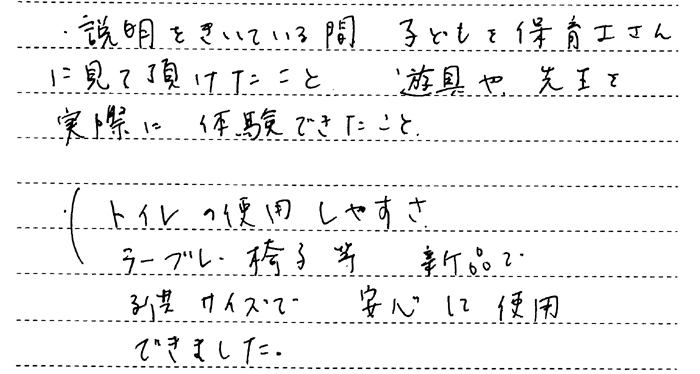 ・説明をきいている間 子どもを保育士さん
に見て頂けたこと 遊具や先生を
実際に 体験できたこと.
・トイレの使用しやすさ
テーブル・椅子等 新品で
子供サイズで 安心して使用
できました。